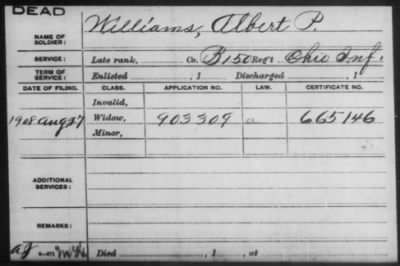 DEAD
NAME OF SOLDIER: Williams, Albert P.
SERVICE: Late rank, Co. B 150 Reg't Ohio Inf.
TERM OF SERVICE: Enlisted , 1 Discharged , 1
DATE OF FILING. CLASS. APPLICATION NO. LAW. CERTIFICATE NO.
Invalid,
1908 Aug 7 Widow, 903309 665146
Minor,
ADDITIONAL SERVICES:
REMARKS:
Died , 1 , at